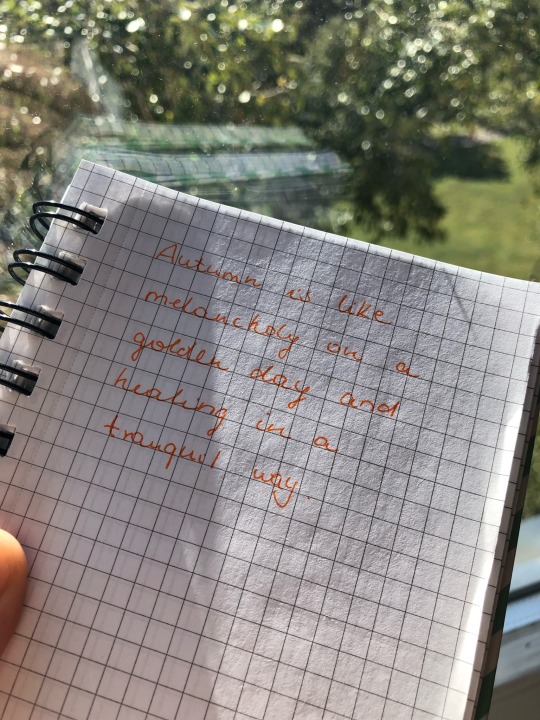 Autumn is like
melancholy on a
golden day and
healing in a
tranquil way.